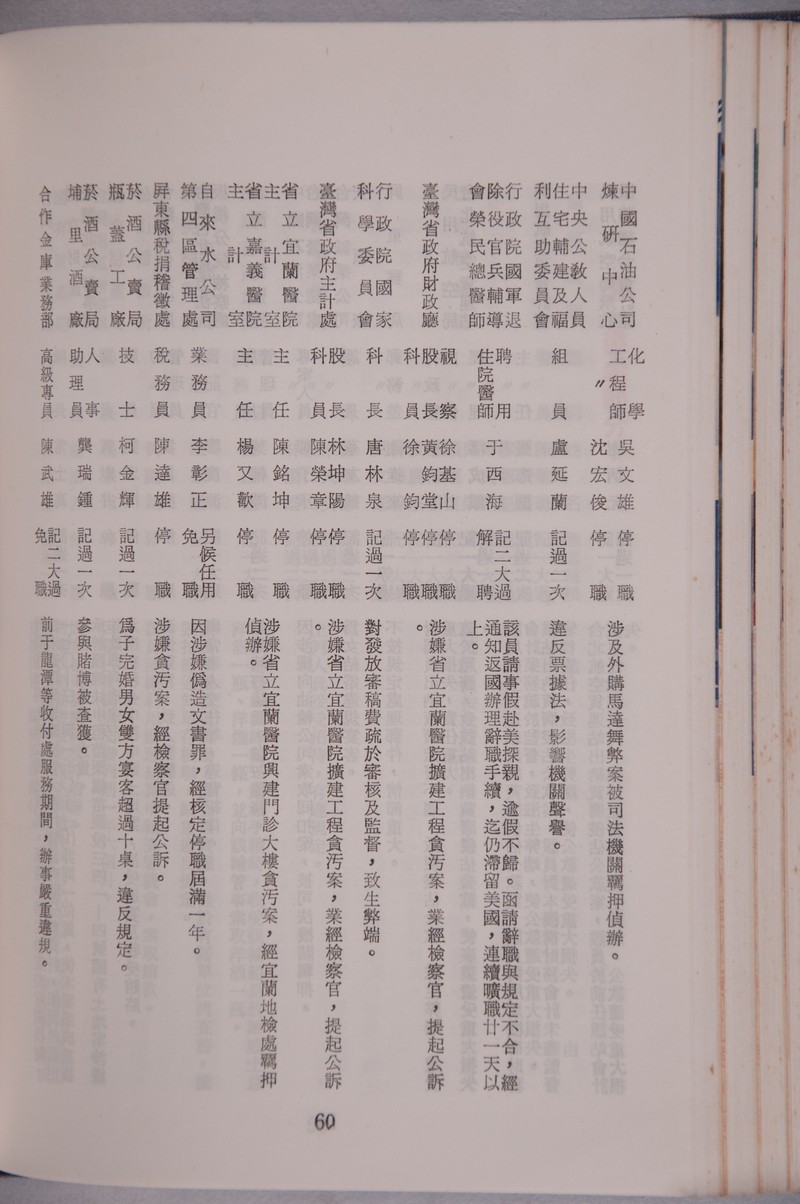 中國石油公司
煉研中心
化學
工程師
〃
吳文雄
沈宏俊
停職
停職
涉及外購馬達舞弊案被司法機關羈押偵辦。
中央公教人員
住宅輔建及福
利互助委員會
組員
盧延蘭
記過一次
違反票據法，影響機關聲譽。
行政院國軍退
除役官兵輔導
會榮民總醫師
聘用
住院醫師
于西海
記二大過
解聘
該員請事假赴美探親，逾假不歸。函請辭職與規定不合，經
通知返國辦理辭職手續，迄仍滯留美國，連續曠職廿一天以
上。
臺灣省政府財政廳
視察
股長
科員
徐基山
黃鈞堂
徐鈞
停職
停職
停職
涉嫌省立宜蘭醫院擴建工程貪污案，業經檢察官，提起公訴
。
行政院國家
科學委員會
科長
唐林泉
記過一次
對發放審稿費疏於審核及監督，致生弊端。
臺灣省政府主計處
股長
科員
林坤陽
陳榮章
停職
停職
涉嫌省立宜蘭醫院擴建工程貪污案，業經檢察官，提起公訴
。
省立宜蘭醫院
主計室
主任
陳銘坤
停職
涉嫌省立宜蘭醫院興建門診大樓貪污案，經宜蘭地檢處羈押
偵辦。
省立嘉義醫院
主計室
主任
楊又歡
停職
自來水公司
第四區管理處
業務員
李彰正
另候任用
免職
因涉嫌僞造文書罪，經核定停職屆滿一年。
屏東縣稅捐稽徵處
稅務員
陳達雄
停職
涉嫌貪污案，經檢察官提起公訴。
菸酒公賣局
瓶蓋工廠
技士
柯金輝
記過一次
爲子完婚男女雙方宴客超過十桌，違反規定。
菸酒公賣局
埔里酒廠
人事
助理員
龔瑞鍾
記過一次
參與賭博被查獲。
合作金庫業務部
高級專員
陳武雄
記二大過
免職
前于龍潭等收付處服務期間，辦事嚴重違規。
60